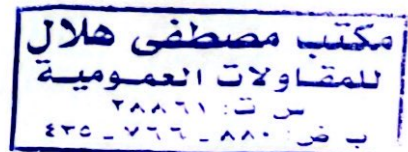 مكتب مصطفى هلال
للمقاولات العمومية
س ت: ٢٨٨٦١
ب ض: ٨٨٠ _ ٧٦٦ _ ٤٣٥